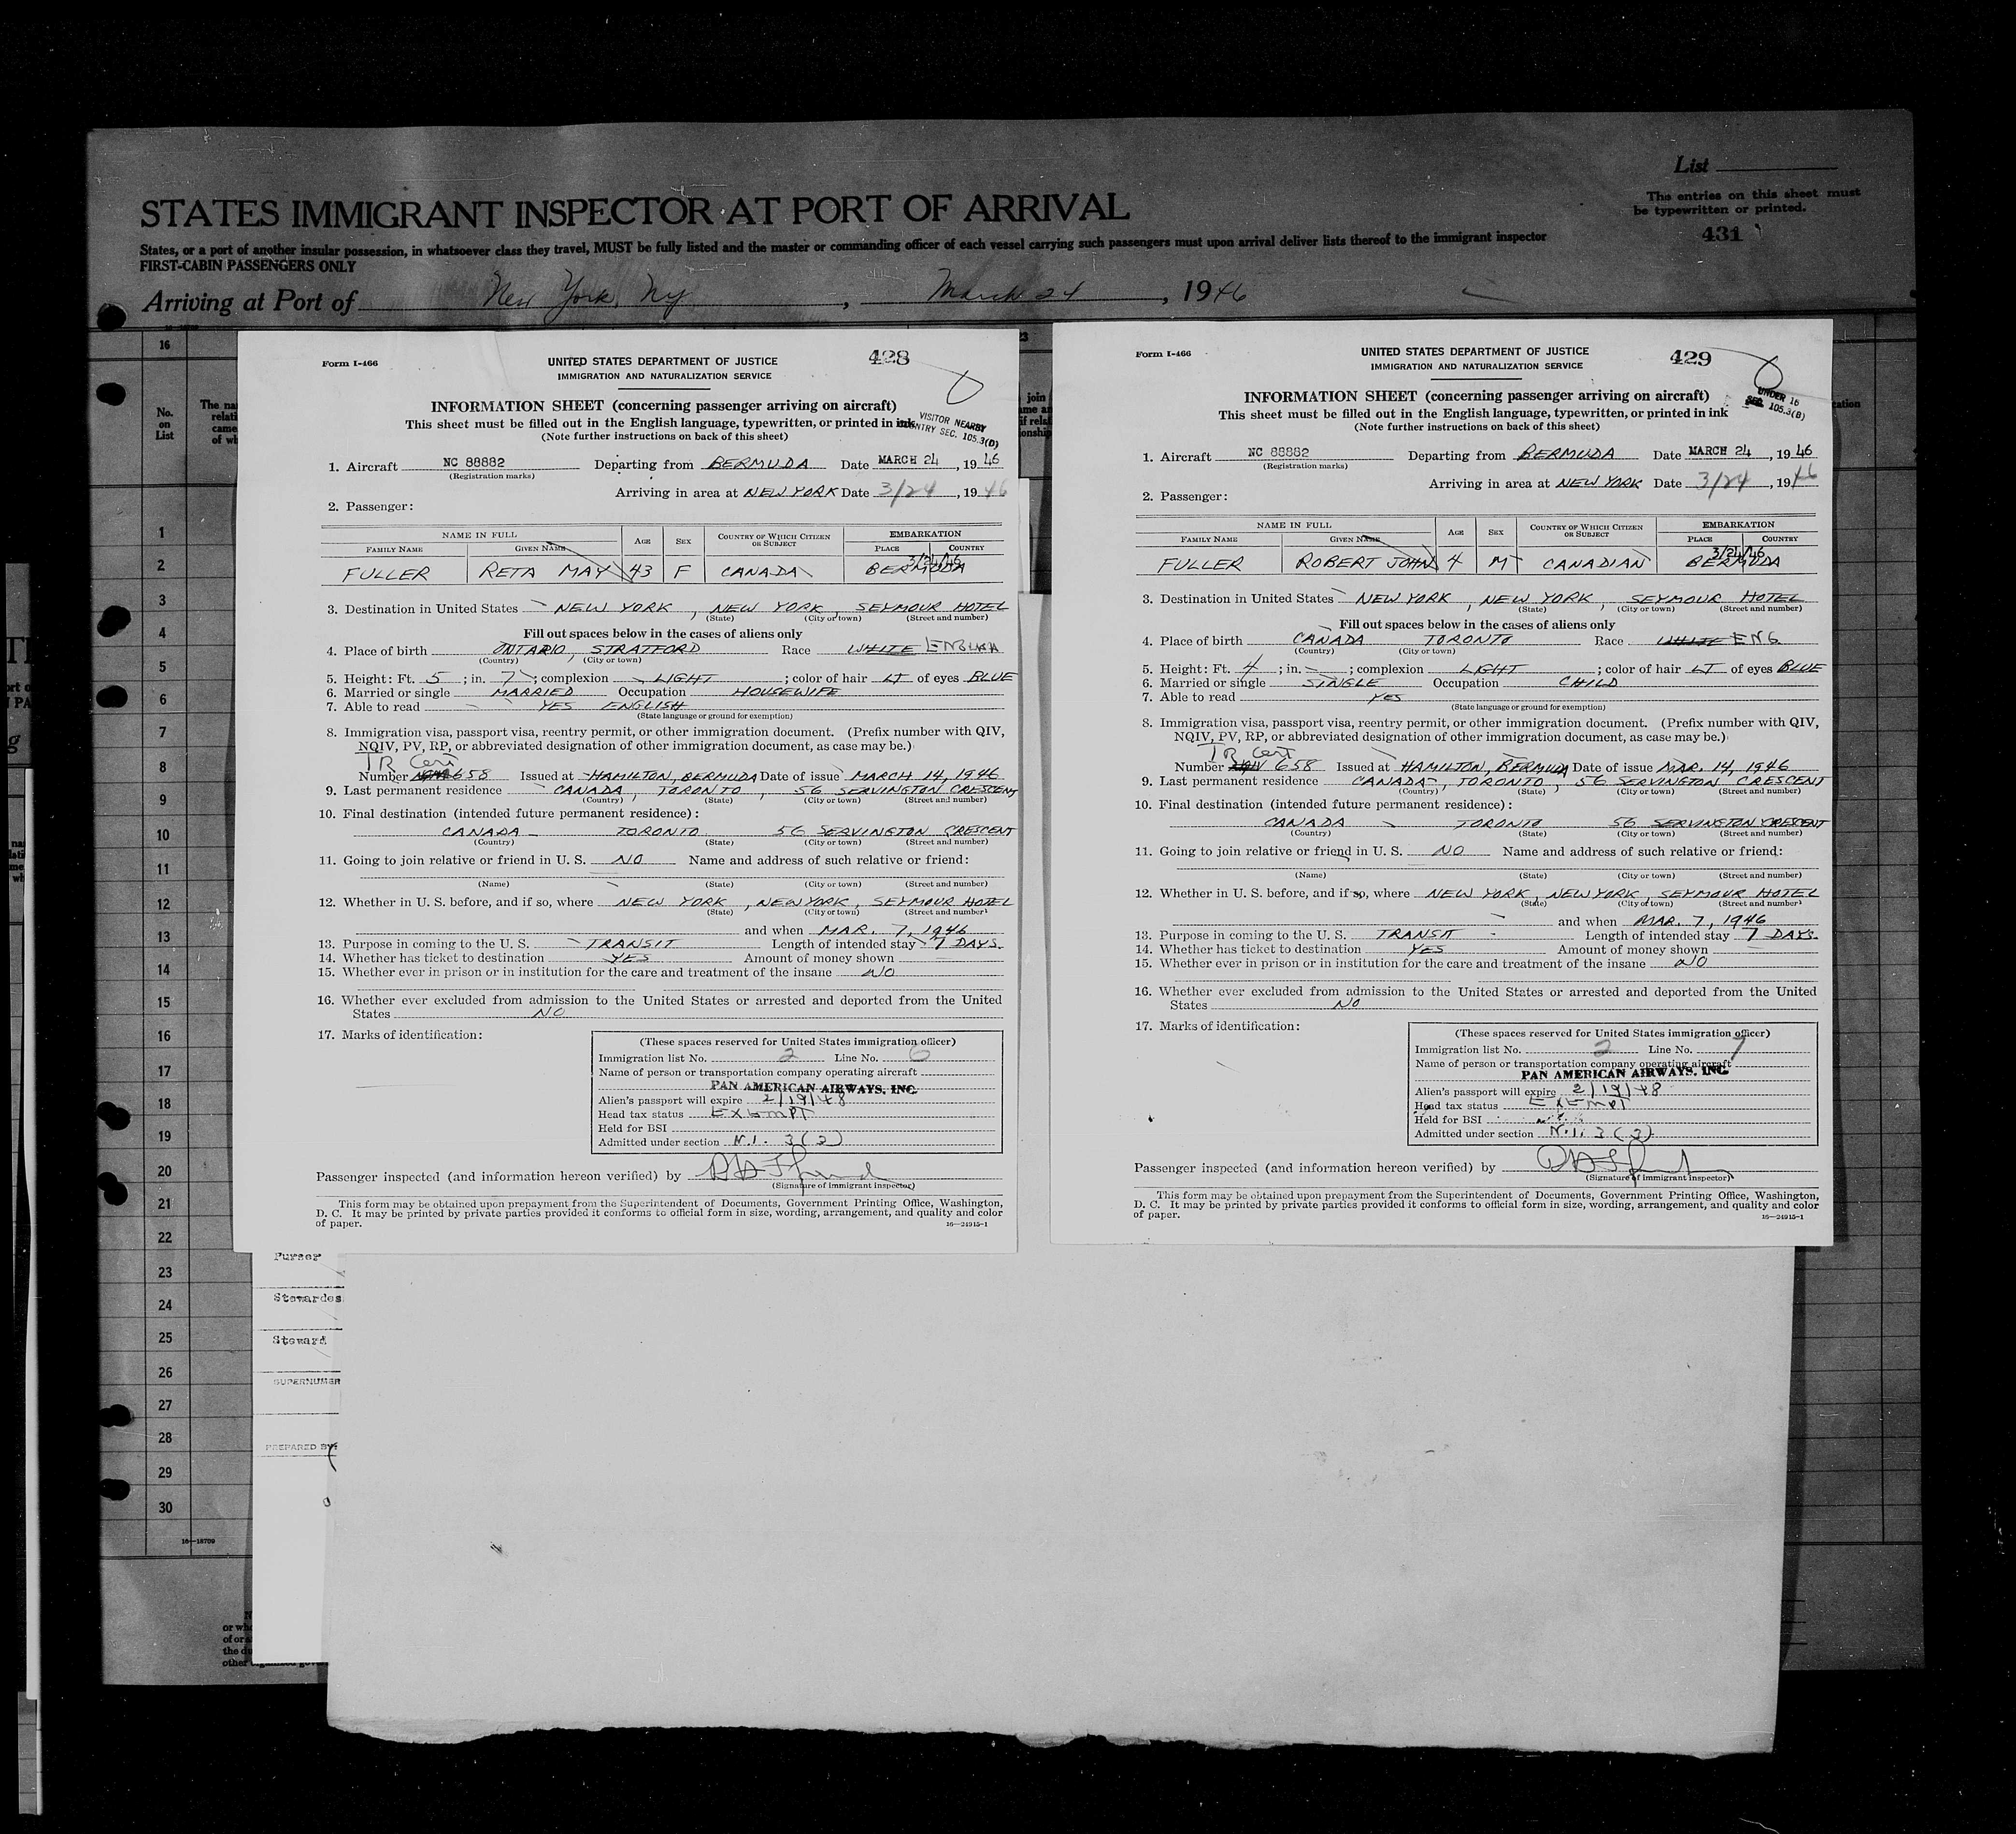 List
The entries on this sheet must
be typewritten or printed.
431
STATES IMMIGRANT INSPECTOR AT PORT OF ARRIVAL
States, or a port of another insular possession, in whatsoever class they travel, MUST be fully listed and the master or commanding officer of each vessel carrying such passengers must upon arrival deliver lists thereof to the immigrant inspector
FIRST-CABIN PASSENGERS ONLY
Arriving at Port of New York, Ny, March 24, 1946
16
No.
on
List
1
2
3
4
5
6
7
8
9
10
11
12
13
14
15
16
17
18
19
20
21
22
23
24
25
26
27
28
29
30
16—18709
Form I-466
UNITED STATES DEPARTMENT OF JUSTICE
428
IMMIGRATION AND NATURALIZATION SERVICE
INFORMATION SHEET (concerning passenger arriving on aircraft)
This sheet must be filled out in the English language, typewritten, or printed in ink
VISITOR NEARBY
COUNTRY SEC. 105.3(D)
(Note further instructions on back of this sheet)
1. Aircraft NC 88882 Departing from BERMUDA Date MARCH 24, 1946
(Registration marks)
Arriving in area at NEW YORK Date 3/24, 1946
2. Passenger:
NAME IN FULL AGE SEX COUNTRY OF WHICH CITIZEN OR SUBJECT EMBARKATION
FAMILY NAME GIVEN NAME PLACE COUNTRY
3/24/46
FULLER RETA MAY 43 F CANADA BERMUDA
3. Destination in United States NEW YORK, NEW YORK, SEYMOUR HOTEL
(State) (City or town) (Street and number)
Fill out spaces below in the cases of aliens only
4. Place of birth ONTARIO, STRATFORD Race WHITE ENGLISH
(Country) (City or town)
5. Height: Ft. 5; in. 7; complexion LIGHT; color of hair LT of eyes BLUE
6. Married or single MARRIED Occupation HOUSEWIFE
7. Able to read YES ENGLISH
(State language or ground for exemption)
8. Immigration visa, passport visa, reentry permit, or other immigration document. (Prefix number with QIV,
NQIV, PV, RP, or abbreviated designation of other immigration document, as case may be.)
TR Cert
Number 658 Issued at HAMILTON, BERMUDA Date of issue MARCH 14, 1946
9. Last permanent residence CANADA, TORONTO, 56 SERVINGTON CRESCENT
(Country) (State) (City or town) (Street and number)
10. Final destination (intended future permanent residence):
CANADA TORONTO 56 SERVINGTON CRESCENT
(Country) (State) (City or town) (Street and number)
11. Going to join relative or friend in U. S. NO Name and address of such relative or friend:
(Name) (State) (City or town) (Street and number)
12. Whether in U. S. before, and if so, where NEW YORK, NEW YORK, SEYMOUR HOTEL
(State) (City or town) (Street and number)
and when MAR. 7, 1946
13. Purpose in coming to the U. S. TRANSIT Length of intended stay 7 DAYS.
14. Whether has ticket to destination YES Amount of money shown
15. Whether ever in prison or in institution for the care and treatment of the insane NO
16. Whether ever excluded from admission to the United States or arrested and deported from the United
States NO
17. Marks of identification:
(These spaces reserved for United States immigration officer)
Immigration list No. 2 Line No. 6
Name of person or transportation company operating aircraft
PAN AMERICAN AIRWAYS, INC.
Alien's passport will expire 2/19/48
Head tax status EXEMPT
Held for BSI
Admitted under section N.I. 3(2)
Passenger inspected (and information hereon verified) by
(Signature of immigrant inspector)
This form may be obtained upon prepayment from the Superintendent of Documents, Government Printing Office, Washington,
D. C. It may be printed by private parties provided it conforms to official form in size, wording, arrangement, and quality and color
of paper.
16—24915-1
Form I-466
UNITED STATES DEPARTMENT OF JUSTICE
429
IMMIGRATION AND NATURALIZATION SERVICE
INFORMATION SHEET (concerning passenger arriving on aircraft)
UNDER 16
SEC. 105.3(B)
This sheet must be filled out in the English language, typewritten, or printed in ink
(Note further instructions on back of this sheet)
1. Aircraft NC 88882 Departing from BERMUDA Date MARCH 24, 1946
(Registration marks)
Arriving in area at NEW YORK Date 3/24, 1946
2. Passenger:
NAME IN FULL AGE SEX COUNTRY OF WHICH CITIZEN OR SUBJECT EMBARKATION
FAMILY NAME GIVEN NAME PLACE COUNTRY
3/24/46
FULLER ROBERT JOHN 4 M CANADIAN BERMUDA
3. Destination in United States NEW YORK, NEW YORK, SEYMOUR HOTEL
(State) (City or town) (Street and number)
Fill out spaces below in the cases of aliens only
4. Place of birth CANADA TORONTO Race WHITE ENG
(Country) (City or town)
5. Height: Ft. 4; in. –; complexion LIGHT; color of hair LT of eyes BLUE
6. Married or single SINGLE Occupation CHILD
7. Able to read YES
(State language or ground for exemption)
8. Immigration visa, passport visa, reentry permit, or other immigration document. (Prefix number with QIV,
NQIV, PV, RP, or abbreviated designation of other immigration document, as case may be.)
TR Cert
Number NQIV 658 Issued at HAMILTON, BERMUDA Date of issue MAR. 14, 1946
9. Last permanent residence CANADA, TORONTO, 56 SERVINGTON CRESCENT
(Country) (State) (City or town) (Street and number)
10. Final destination (intended future permanent residence):
CANADA TORONTO 56 SERVINGTON CRESCENT
(Country) (State) (City or town) (Street and number)
11. Going to join relative or friend in U. S. NO Name and address of such relative or friend:
(Name) (State) (City or town) (Street and number)
12. Whether in U. S. before, and if so, where NEW YORK, NEW YORK, SEYMOUR HOTEL
(State) (City or town) (Street and number)
and when MAR. 7, 1946
13. Purpose in coming to the U. S. TRANSIT Length of intended stay 7 DAYS.
14. Whether has ticket to destination YES Amount of money shown
15. Whether ever in prison or in institution for the care and treatment of the insane NO
16. Whether ever excluded from admission to the United States or arrested and deported from the United
States NO
17. Marks of identification:
(These spaces reserved for United States immigration officer)
Immigration list No. 2 Line No. 7
Name of person or transportation company operating aircraft
PAN AMERICAN AIRWAYS, INC.
Alien's passport will expire 2/19/48
Head tax status EXEMPT
Held for BSI
Admitted under section N.I. 3(2)
Passenger inspected (and information hereon verified) by
(Signature of immigrant inspector)
This form may be obtained upon prepayment from the Superintendent of Documents, Government Printing Office, Washington,
D. C. It may be printed by private parties provided it conforms to official form in size, wording, arrangement, and quality and color
of paper.
16—24915-1
Purser
Stewardes
Steward
SUPERNUMER
PREPARED BY: